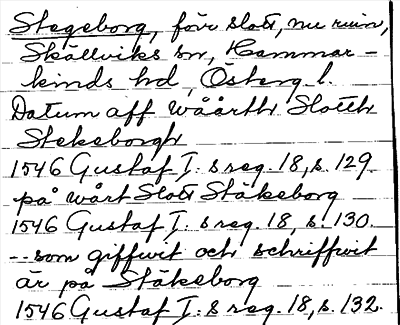 Stegeborg, förr slott, nu ruin,
Skällviks sn, Hammar-
kinds hd, Österg. l.
Datum aff wåårth Slotth
Stekeborgh
1546 Gustaf I: s reg. 18, s. 129.
på wårt Slott Stäkeborg
1546 Gustaf I: s reg. 18, s. 130.
-- som giffwit och schriffwit
är på Stäkeborg
1546 Gustaf I: s reg. 18, s. 132.